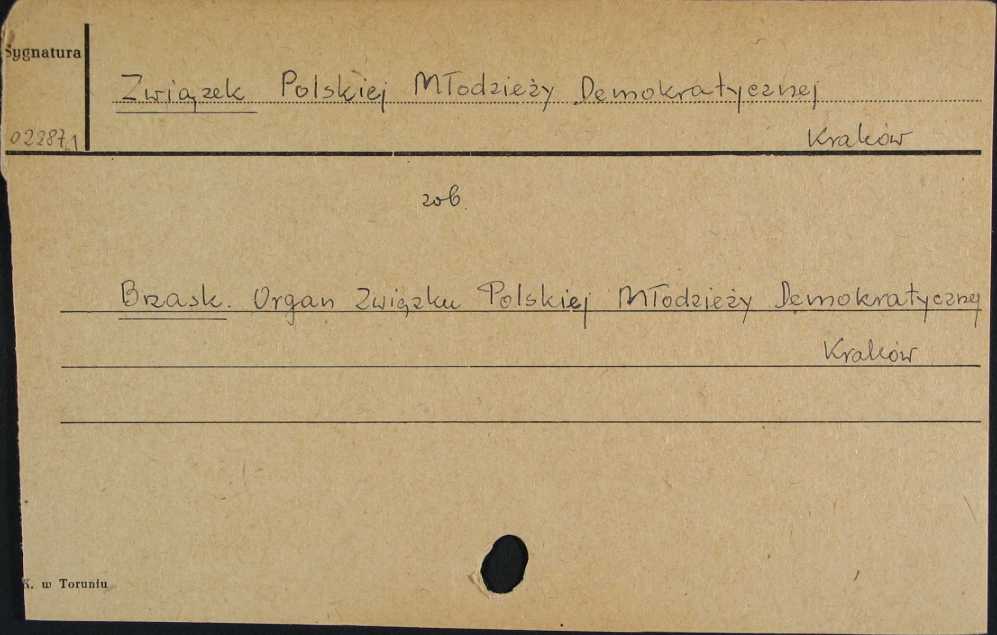 Sygnatura
Związek Polskiej Młodzieży Demokratycznej
022871
Kraków
zob.
Brzask. Organ Związku Polskiej Młodzieży Demokratycznej
Kraków
K. w Toruniu